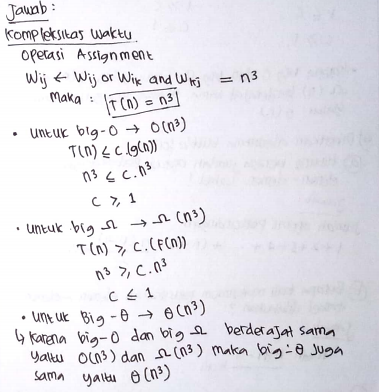 Jawab :
Kompleksitas Waktu
Operasi Assignment
Wij ← Wij or Wik and Wkj = n³
Maka : T(n) = n³
• Untuk big-O → O(n³)
T(n) ≤ C(g(n))
n³ ≤ C.n³
C ≥ 1
• Untuk big Ω → Ω(n³)
T(n) ≥ C.(F(n))
n³ ≥ C.n³
C ≤ 1
• Untuk Big-θ → θ(n³)
↳ Karena big-O dan big Ω berderajat sama
yaitu O(n³) dan Ω(n³) maka big-θ juga
sama yaitu θ(n³)